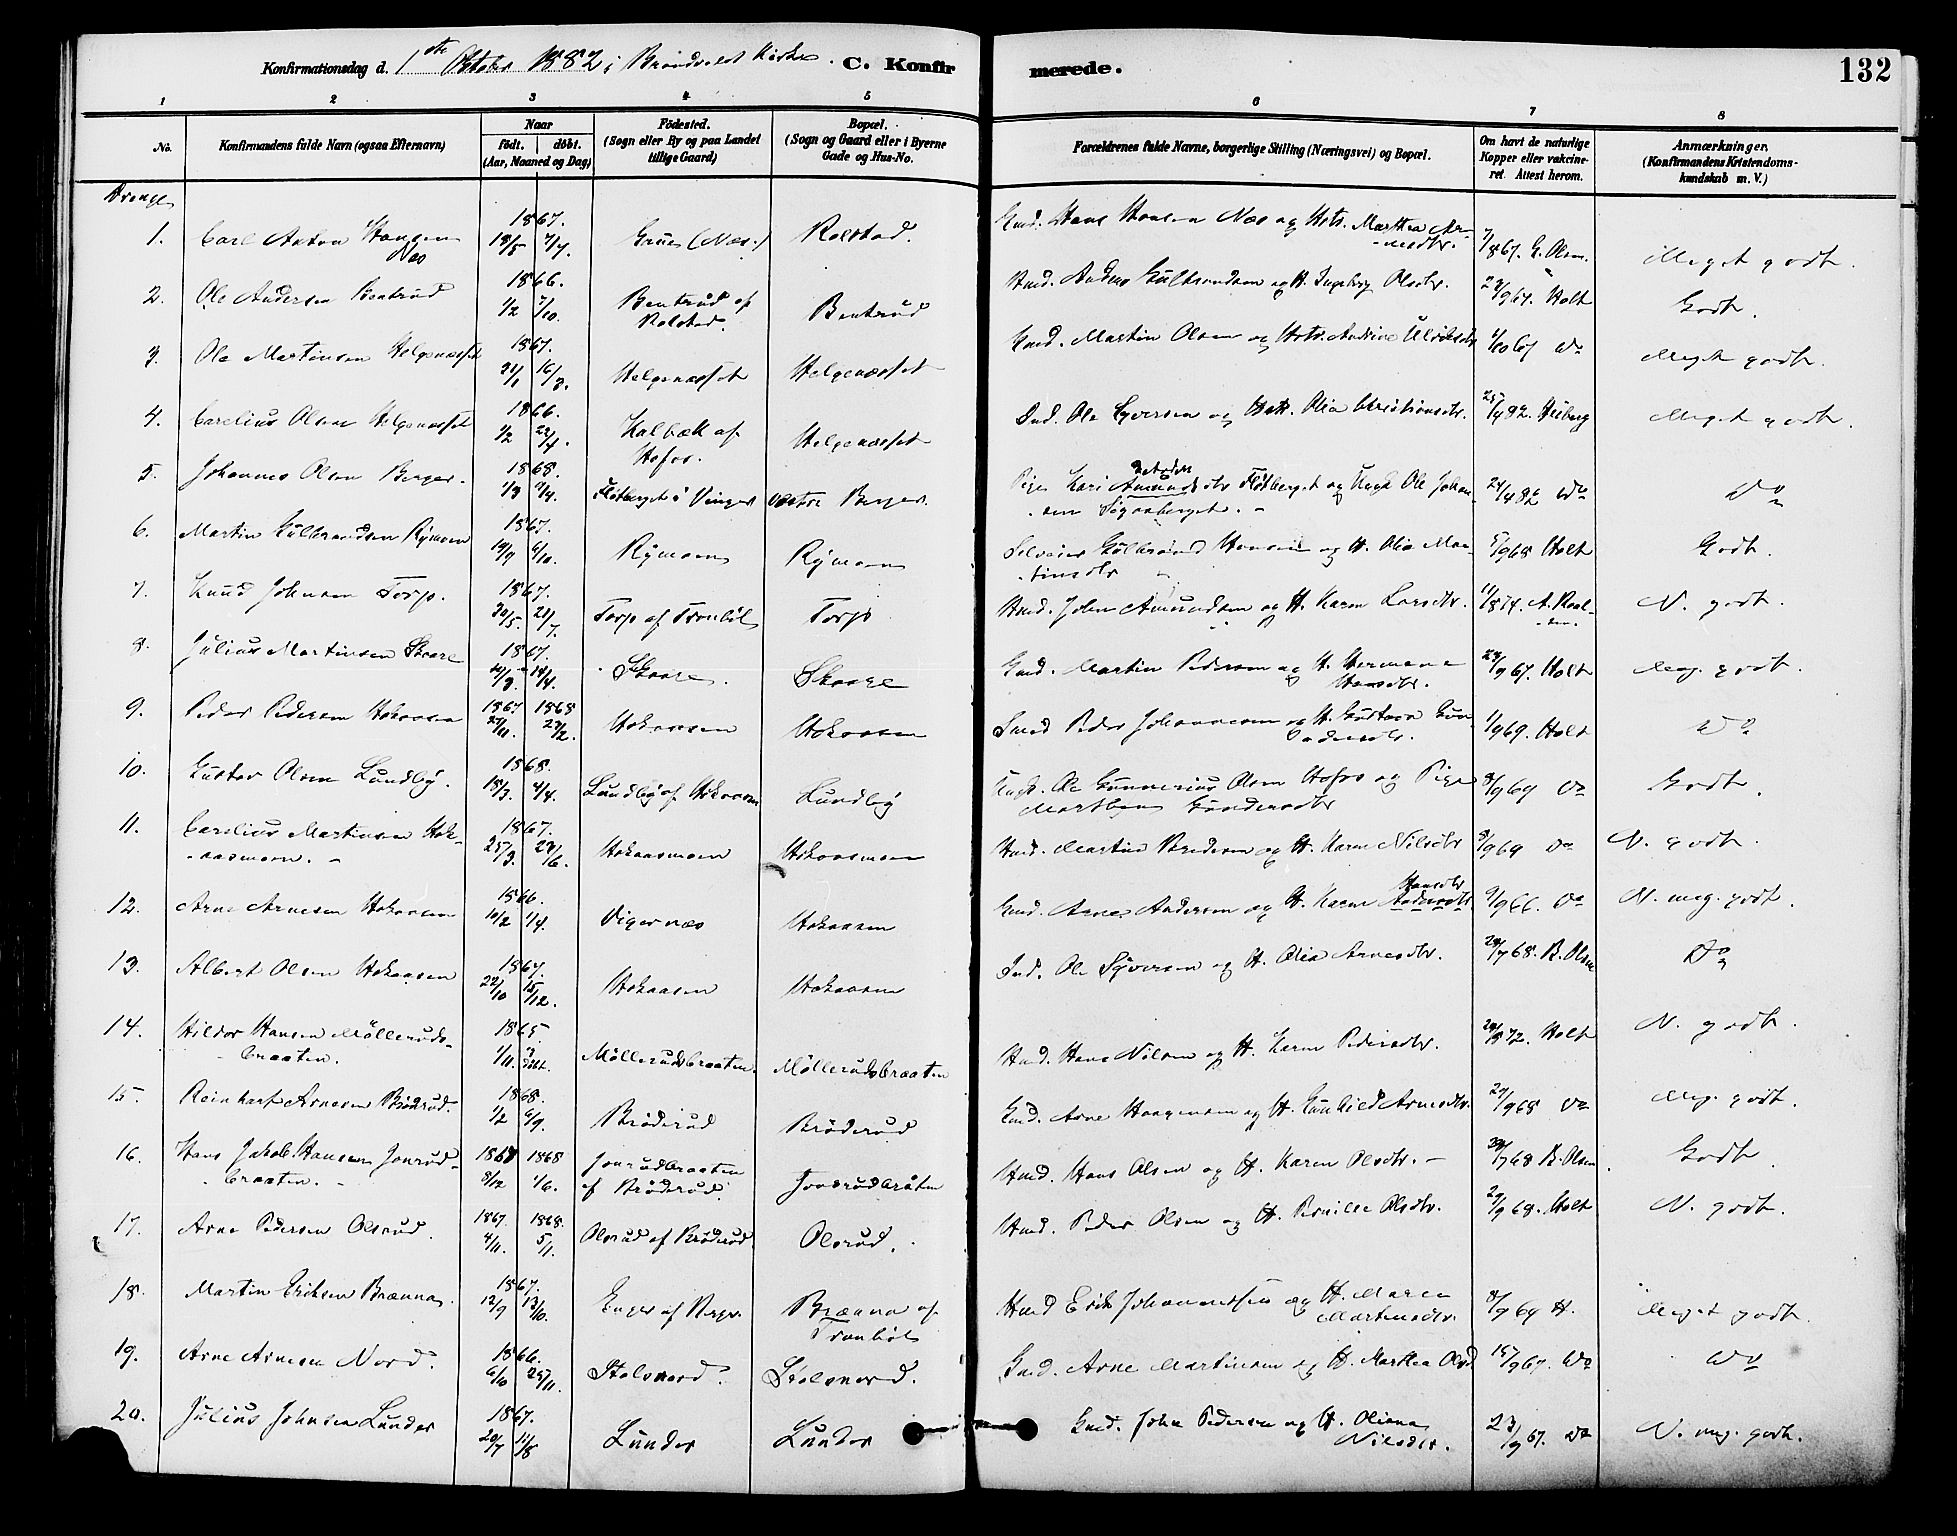 Konfirmationsdag d. 1ste Oktober 1882 i Brandvold Kirke. C. Konfirmerede. 132
1 2 3 4 5 6 7 8
No. Konfirmandens fulde Navn (ogsaa Efternavn) Naar født. døbt. (Aar, Maaned og Dag) Fødested. (Sogn eller By og paa Landet tillige Gaard) Bopæl. (Sogn og Gaard eller i Byerne Gade og Hus-No. Forældrenes fulde Navne, borgerlige Stilling (Næringsvei) og Bopæl. Om havt de naturlige Kopper eller vakcineret. Attest herom. Anmærkninger. (Konfirmandens Kristendomskundskab m. V.)
Drenge
1. Carl Anton Hansen Næs 1867. 18/5 7/7. Grue (Næs) Rolstad. Gmd. Hans Hansen Næs og Hstr. Marthea Arnesdtr. 7/867. G. Olsen. Meget godt.
2. Ole Andersen Bentrud 1866. 1/2 7/10. Bentrud af Rolstad. Bentrud Hmd. Anders Gulbrandsen og H. Ingeborg Olsdtr. 23/967. Holt Godt.
3. Ole Martinsen Helgenæsset 1867. 31/1 16/3. Helgenæsset Helgenæsset Gmd. Martin Olsen og Hstr. Andrine Ulriksdtr 1/1067 Do Meget godt.
4. Carelius Olsen Helgenæsset 1866. 1/2 22/4. Kalbæk af Hofos. Helgenæsset Ind. Ole Syversen og Hstr. Olia Christiansdtr. 25/482. Heiberg Meget godt.
5. Johannes Olsen Berger. 1868. 1/3 7/4. Fløtberget i Vinger Vestre Berger. Pige Kari Amundsdtr Fløtberget og Ungk Ole Johansen Sigaaberget. 24/482 Do Do
6. Martin Gulbrandsen Rymoen 1867. 19/9 6/10. Rymoen Rymoen Selveier Gulbrand Hansen og H. Olia Martinsdtr 5/968 Holt Godt.
7. Knud Johnsen Torp. 1867. 30/5. 21/7. Torp af Tronbøl Torp Hmd. John Amundsen og H. Karen Larsdtr. 11/874. A. N. godt.
8. Julius Martinsen Skaare 1867. 14/4. Skaare. Skaare Gmd. Martin Pedersen og H. Hermana Hansdtr. 23/967. Holt Meg. godt.
9. Peder Pedersen Hokaasen 1867 1868 27/11. 23/2. Hokaasen Hokaasen Smed Peder Johannesen og H. Gustava Gundersdtr. 1/969. Holt Do
10. Gustav Olsen Lundby. 1868. 18/3. 4/4. Lundby af Hokaasen Lundby Ungk. Ole Gunnerius Olsen Hofos og Pige Marthea Gundersdtr 8/969 Do Godt.
11. Carelius Martinsen Hokaasmoen. 1867. 25/3. 24/6. Hokaasmoen Hokaasmoen Hmd. Martin Pedersen og H. Karen Nilsdtr 8/969 Do N. godt.
12. Arne Arnesen Hokaasen 1866. 10/2 1/4. Vigernæs Hokaasen Gmd. Arne Andersen og H. Karen Hansdtr 9/966. Do N. meg. godt.
13. Albert Olsen Hokaasen 1867. 22/10 15/12. Hokaasen Hokaasen Ind. Ole Syversen og H. Olia Arnesdtr. 24/768. B. Olsen Do
14. Hildor Hansen Møllerudsbraaten. 1865. 1/11. Møllerudsbraaten. Møllerudsbraaten Hmd. Hans Nilsen og H. Karen Pedersdtr. 24/872. Holt N. godt.
15. Reinhart Arnesen Brøderud. 1868. 1/2 6/9. Brøderud Brøderud Gmd. Arne Haagensen og H. Gunhild Arnesdtr. 27/968 Do Meg. godt.
16. Hans Jakob Hansen Jonrudbraaten. 1867 1868 8/12 1/6. Jonrudbraaten af Brøderud. Jonsrudbråten Hmd. Hans Olsen og H. Karen Olsdtr. 24/768 B. Olsen Godt.
17. Arne Pedersen Olsrud. 1867. 1868. 4/11. 5/1. Olsrud af Brøderud. Olsrud. Hmd. Peder Olsen og H. Pernille Olsdtr. 27/968. Holt N. godt.
18. Martin Eriksen Brænna. 1867. 12/9 13/10. Enger af Berger Brænna af Tronbøl Hmd Erik Johannessen og H. Maren Martinsdtr. 8/969 H. Meget godt.
19. Arne Arnesen Nord. 1866. 6/10 25/11. Stolsnord. Stolsnord. Gmd. Arne Martinsen og H. Marthea Olsd 15/967. Do Do
20. Julius Johnsen Lunder 1867. 20/7 11/8 Lunder Lunder Gmd. John Pedersen og H. Oliana Nilsdtr. 23/967. Do N. meg. godt.